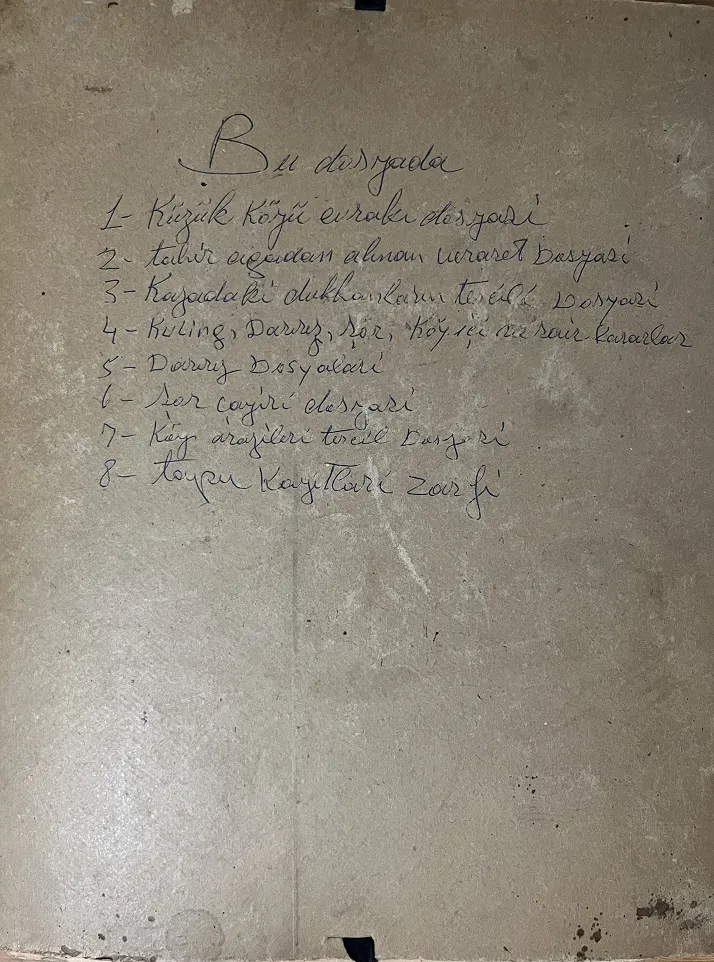 Bu dosyada
1- Küzük Köyü evrakı dosyasi
2- tahir agadan alınan veraset Dosyasi
3- Kazadaki dukkanların tescili Dosyasi
4- Kuling, Darız, Şor, Köy içi ve sair kararlar
5- Darız Dosyaları
6- Şor çayiri dosyasi
7- Köy arazileri tescil Dosyasi
8- tapu Kayıtlari Zarfi